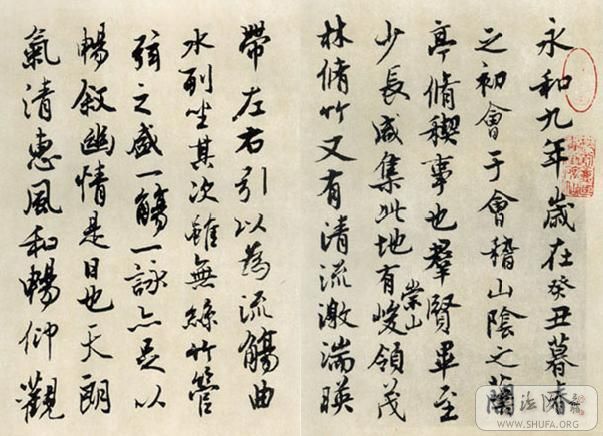 永和九年歲在癸丑暮春
之初會于會稽山陰之蘭
亭脩稧事也羣賢畢至
少長咸集此地有崇山峻領茂
林脩竹又有清流激湍暎
帶左右引以為流觴曲
水列坐其次雖無絲竹管
弦之盛一觴一詠亦足以
暢敘幽情是日也天朗
氣清惠風和暢仰觀
WWW.SHUFA.ORG